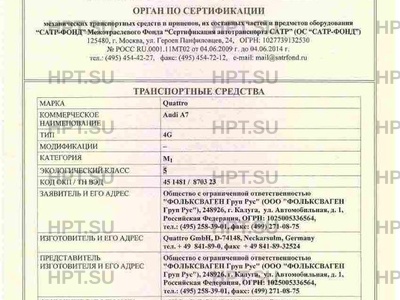 ОРГАН ПО СЕРТИФИКАЦИИ
механических транспортных средств и прицепов, их составных частей и предметов оборудования
"САТР-ФОНД" Межотраслевого Фонда "Сертификация автотранспорта САТР" (ОС "САТР-ФОНД")
125480, г. Москва, ул. Героев Панфиловцев, 24, ОГРН: 1027739132530
№ РОСС RU.0001.11МТ02 от 04.06.2009 г. до 04.06.2014 г.
тел.: (495) 454-42-27, факс: (495) 454-72-12, e-mail: mail@satrfond.ru
HPT.SU HPT.SU HPT.SU
ТРАНСПОРТНЫЕ СРЕДСТВА
МАРКА Quattro
КОММЕРЧЕСКОЕ НАИМЕНОВАНИЕ Audi A7
ТИП 4G
МОДИФИКАЦИИ –
КАТЕГОРИЯ M1
ЭКОЛОГИЧЕСКИЙ КЛАСС 5
КОД ОКП / ТН ВЭД 45 1481 / 8703 23
ЗАЯВИТЕЛЬ И ЕГО АДРЕС Общество с ограниченной ответственностью
"ФОЛЬКСВАГЕН Груп Рус" (ООО "ФОЛЬКСВАГЕН
Груп Рус"), 248926, г. Калуга, ул. Автомобильная, д. 1,
Российская Федерация, ОГРН: 1025005336564,
тел.: (495) 258-39-01, факс: (499) 271-08-75
ИЗГОТОВИТЕЛЬ И ЕГО АДРЕС Quattro GmbH, D-74148, Neckarsulm, Germany
тел. + 49 841-89-0, факс + 49 841-89-32524
ПРЕДСТАВИТЕЛЬ
ИЗГОТОВИТЕЛЯ И ЕГО АДРЕС
Общество с ограниченной ответственностью
"ФОЛЬКСВАГЕН Груп Рус" (ООО "ФОЛЬКСВАГЕН
Груп Рус"), 248926, г. Калуга, ул. Автомобильная, д. 1,
Российская Федерация, ОГРН: 1025005336564,
тел.: (495) 258-39-01, факс: (499) 271-08-75